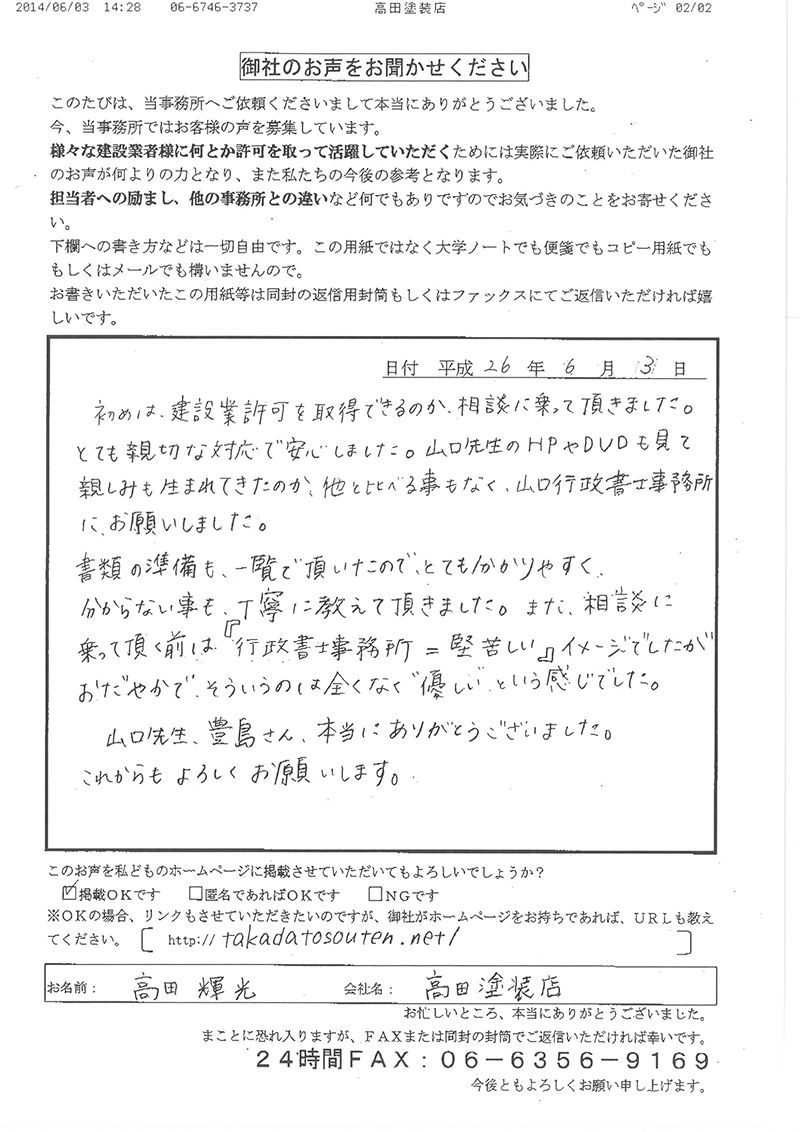 2014/06/03 14:28 06-6746-3737 高田塗装店 ページ 02/02
御社のお声をお聞かせください
このたびは、当事務所へご依頼くださいまして本当にありがとうございました。
今、当事務所ではお客様の声を募集しています。
様々な建設業者様に何とか許可を取って活躍していただくためには実際にご依頼いただいた御社
のお声が何よりの力となり、また私たちの今後の参考となります。
担当者への励まし、他の事務所との違いなど何でもありですのでお気づきのことをお寄せくださ
い。
下欄への書き方などは一切自由です。この用紙ではなく大学ノートでも便箋でもコピー用紙でも
もしくはメールでも構いませんので。
お書きいただいたこの用紙等は同封の返信用封筒もしくはファックスにてご返信いただければ嬉
しいです。
日付 平成 26 年 6 月 3 日
初めは、建設業許可を取得できるのか、相談に乗って頂きました。
とても親切な対応で安心しました。山口先生のHPやDVDも見て
親しみも生まれてきたのか、他と比べる事もなく、山口行政書士事務所
に、お願いしました。
書類の準備も、一覧で頂いたので、とても分かりやすく、
分からない事も、丁寧に教えて頂きました。また、相談に
乗って頂く前は『行政書士事務所=堅苦しい』イメージでしたが
おだやかで、そういうのは全くなく“優しい”という感じでした。
山口先生、豊島さん、本当にありがとうございました。
これからもよろしくお願いします。
このお声を私どものホームページに掲載させていただいてもよろしいでしょうか?
☑掲載OKです □匿名であればOKです □NGです
※OKの場合、リンクもさせていただきたいのですが、御社がホームページをお持ちであれば、URLも教え
てください。 [ http://takadatosouten.net/ ]
お名前: 高田 輝光 会社名: 高田塗装店
お忙しいところ、本当にありがとうございました。
まことに恐れ入りますが、FAXまたは同封の封筒でご返信いただければ幸いです。
24時間FAX:06-6356-9169
今後ともよろしくお願い申し上げます。